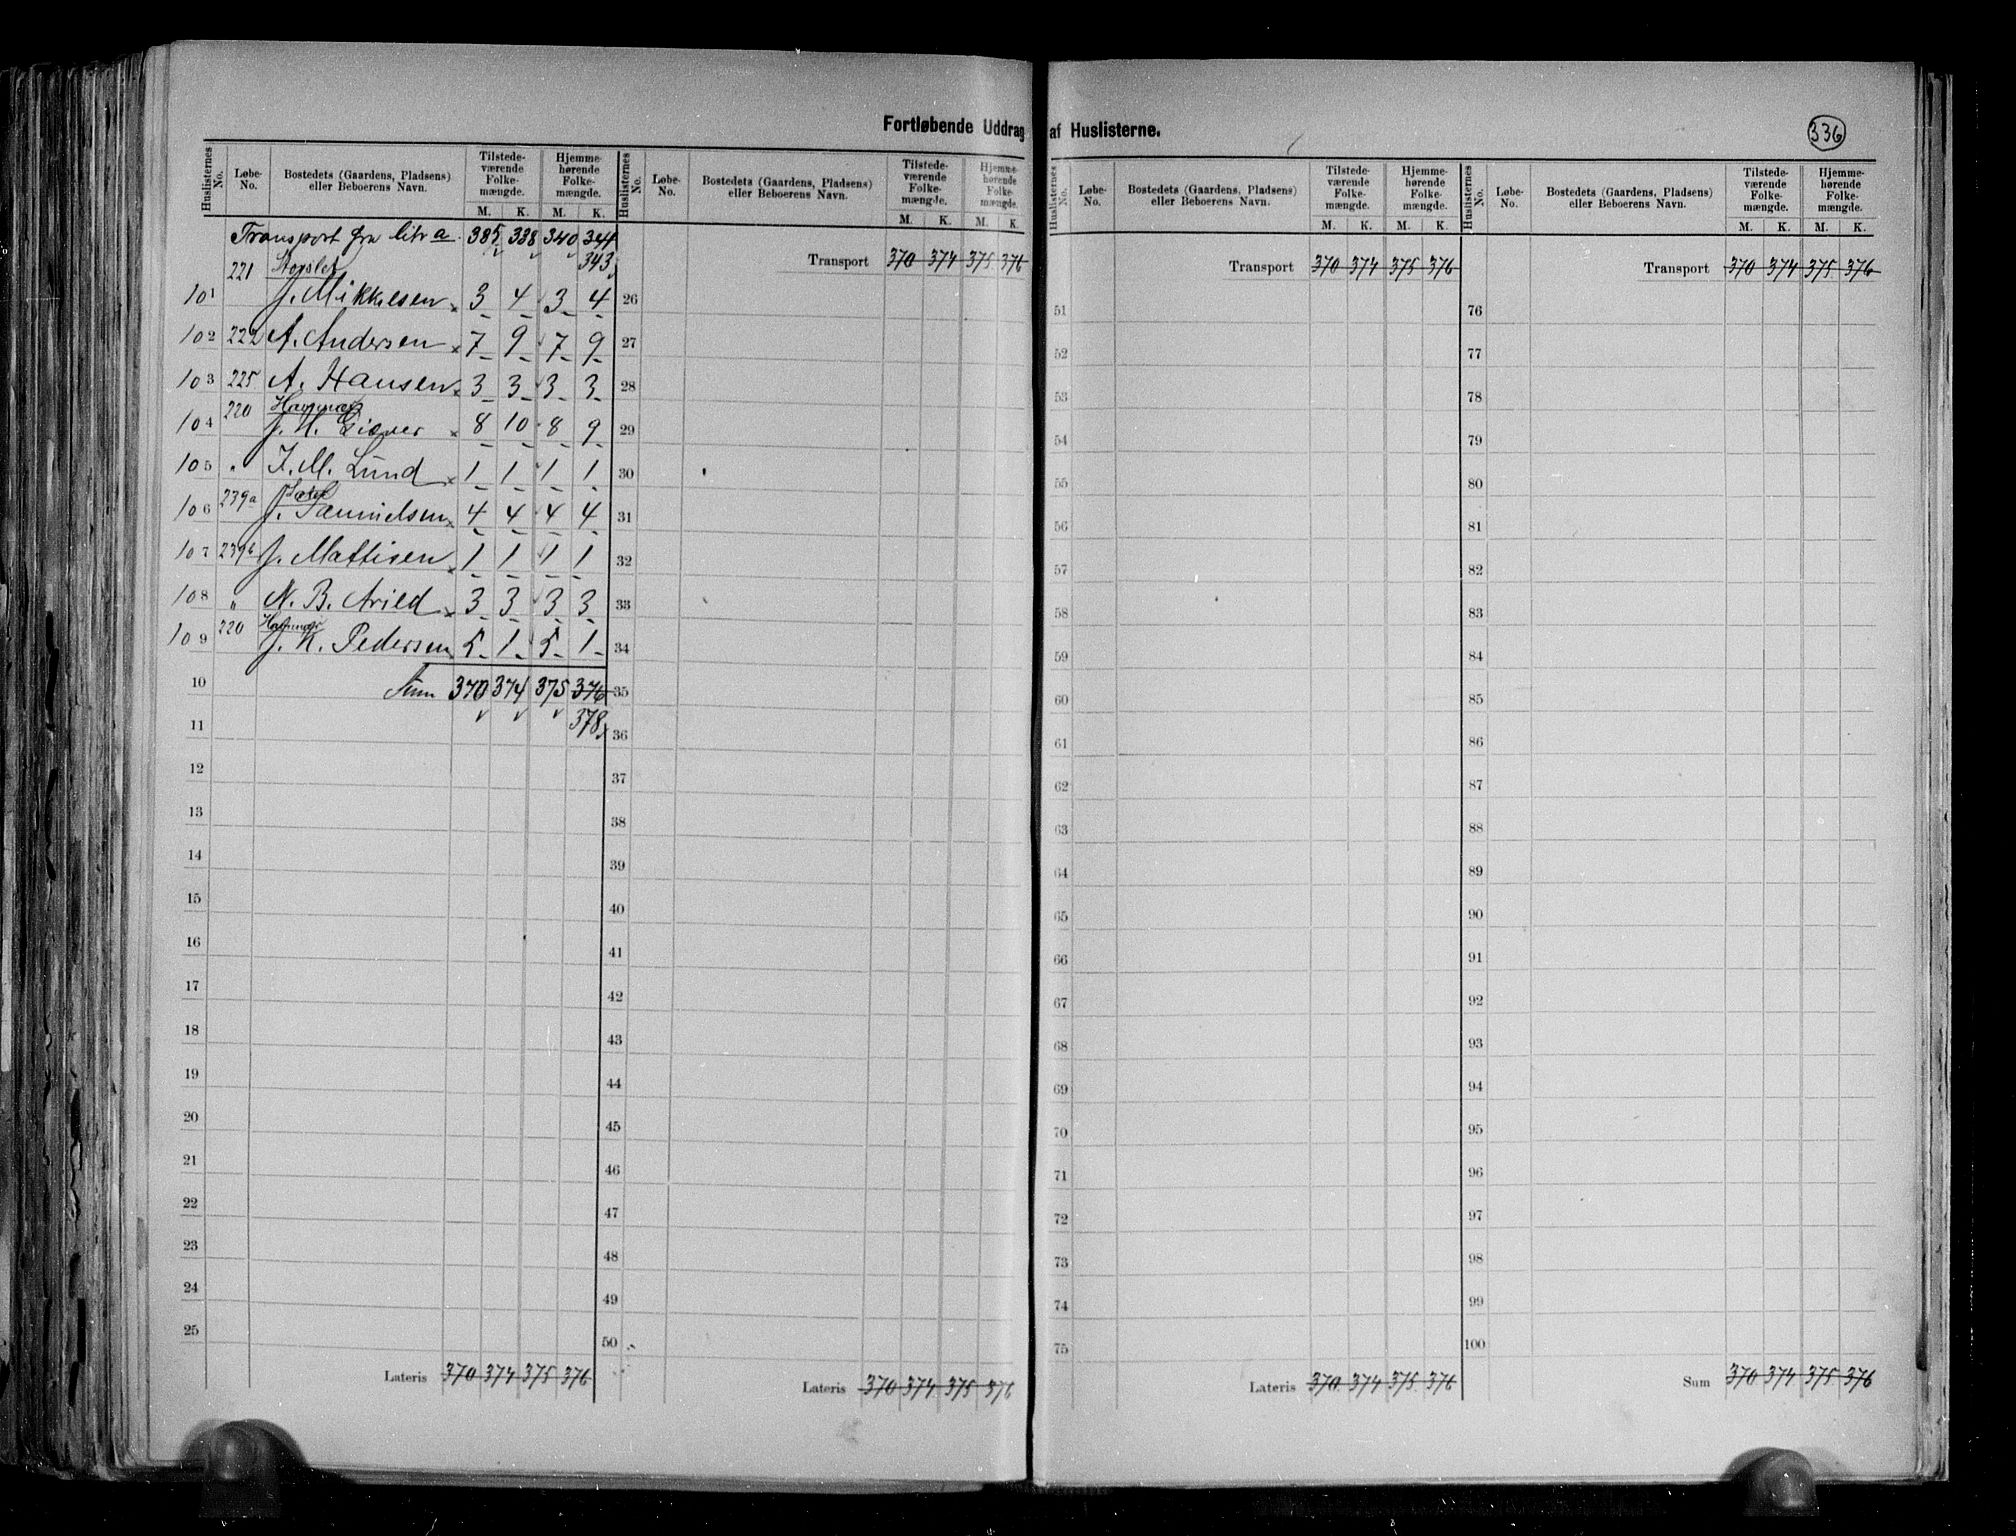 Fortløbende Uddrag af Huslisterne.
336
Huslisternes No. Løbe-No. Bostedets (Gaardens, Pladsens) eller Beboerens Navn. Tilstede-værende Folke-mængde. Hjemme-hørende Folke-mængde.
M. K. M. K.
Transport fra litr a. 385 338 340 341
343
221 Storslet
101 J. Mikkelsen 3 4 3 4
102 222 A. Andersen 7 9 7 9
103 225 A. Hansen 3 3 3 3
220 Havnnæs
104 J. H. Giæver 8 10 8 9
105 " I. M. Lund 1 1 1 1
106 239a J. Samuelsen 4 4 4 4
107 239b J. Mattisen 1 1 1 1
108 " N. B. Arild 3 3 3 3
220 Havnnæs
109 J. N. Pedersen 5 1 5 1
10 Sum 370 374 375 376
11 378
12
13
14
15
16
17
18
19
20
21
22
23
24
25
Lateris 370 374 375 376
Huslisternes No. Løbe-No. Bostedets (Gaardens, Pladsens) eller Beboerens Navn. Tilstede-værende Folke-mængde. Hjemme-hørende Folke-mængde.
M. K. M. K.
Transport 370 374 375 376
26
27
28
29
30
31
32
33
34
35
36
37
38
39
40
41
42
43
44
45
46
47
48
49
50
Lateris 370 374 375 376
Huslisternes No. Løbe-No. Bostedets (Gaardens, Pladsens) eller Beboerens Navn. Tilstede-værende Folke-mængde. Hjemme-hørende Folke-mængde.
M. K. M. K.
Transport 370 374 375 376
51
52
53
54
55
56
57
58
59
60
61
62
63
64
65
66
67
68
69
70
71
72
73
74
75
Lateris 370 374 375 376
Huslisternes No. Løbe-No. Bostedets (Gaardens, Pladsens) eller Beboerens Navn. Tilstede-værende Folke-mængde. Hjemme-hørende Folke-mængde.
M. K. M. K.
Transport 370 374 375 376
76
77
78
79
80
81
82
83
84
85
86
87
88
89
90
91
92
93
94
95
96
97
98
99
100
Sum 370 374 375 376